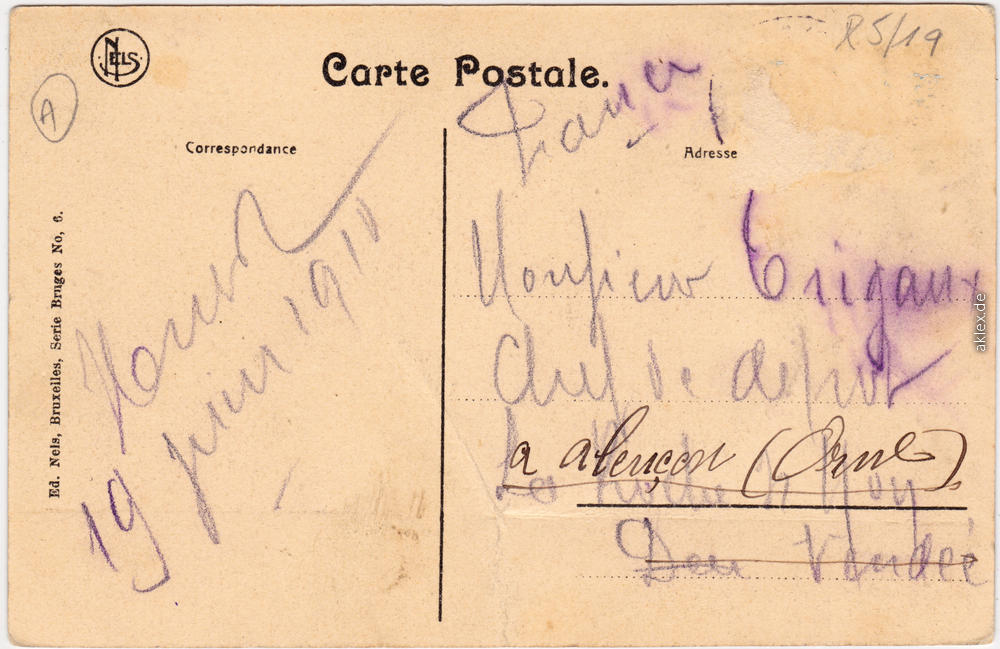 NELS
Carte Postale.
R5/19
A
Correspondance
Adresse
Ed. Nels, Bruxelles, Serie Bruges No, 6.
19 juin 1911
Monsieur Trigaux
Chef de depot
a alençon (Orne)
La Roche s/ Yon
Dep Vendée
aklex.de